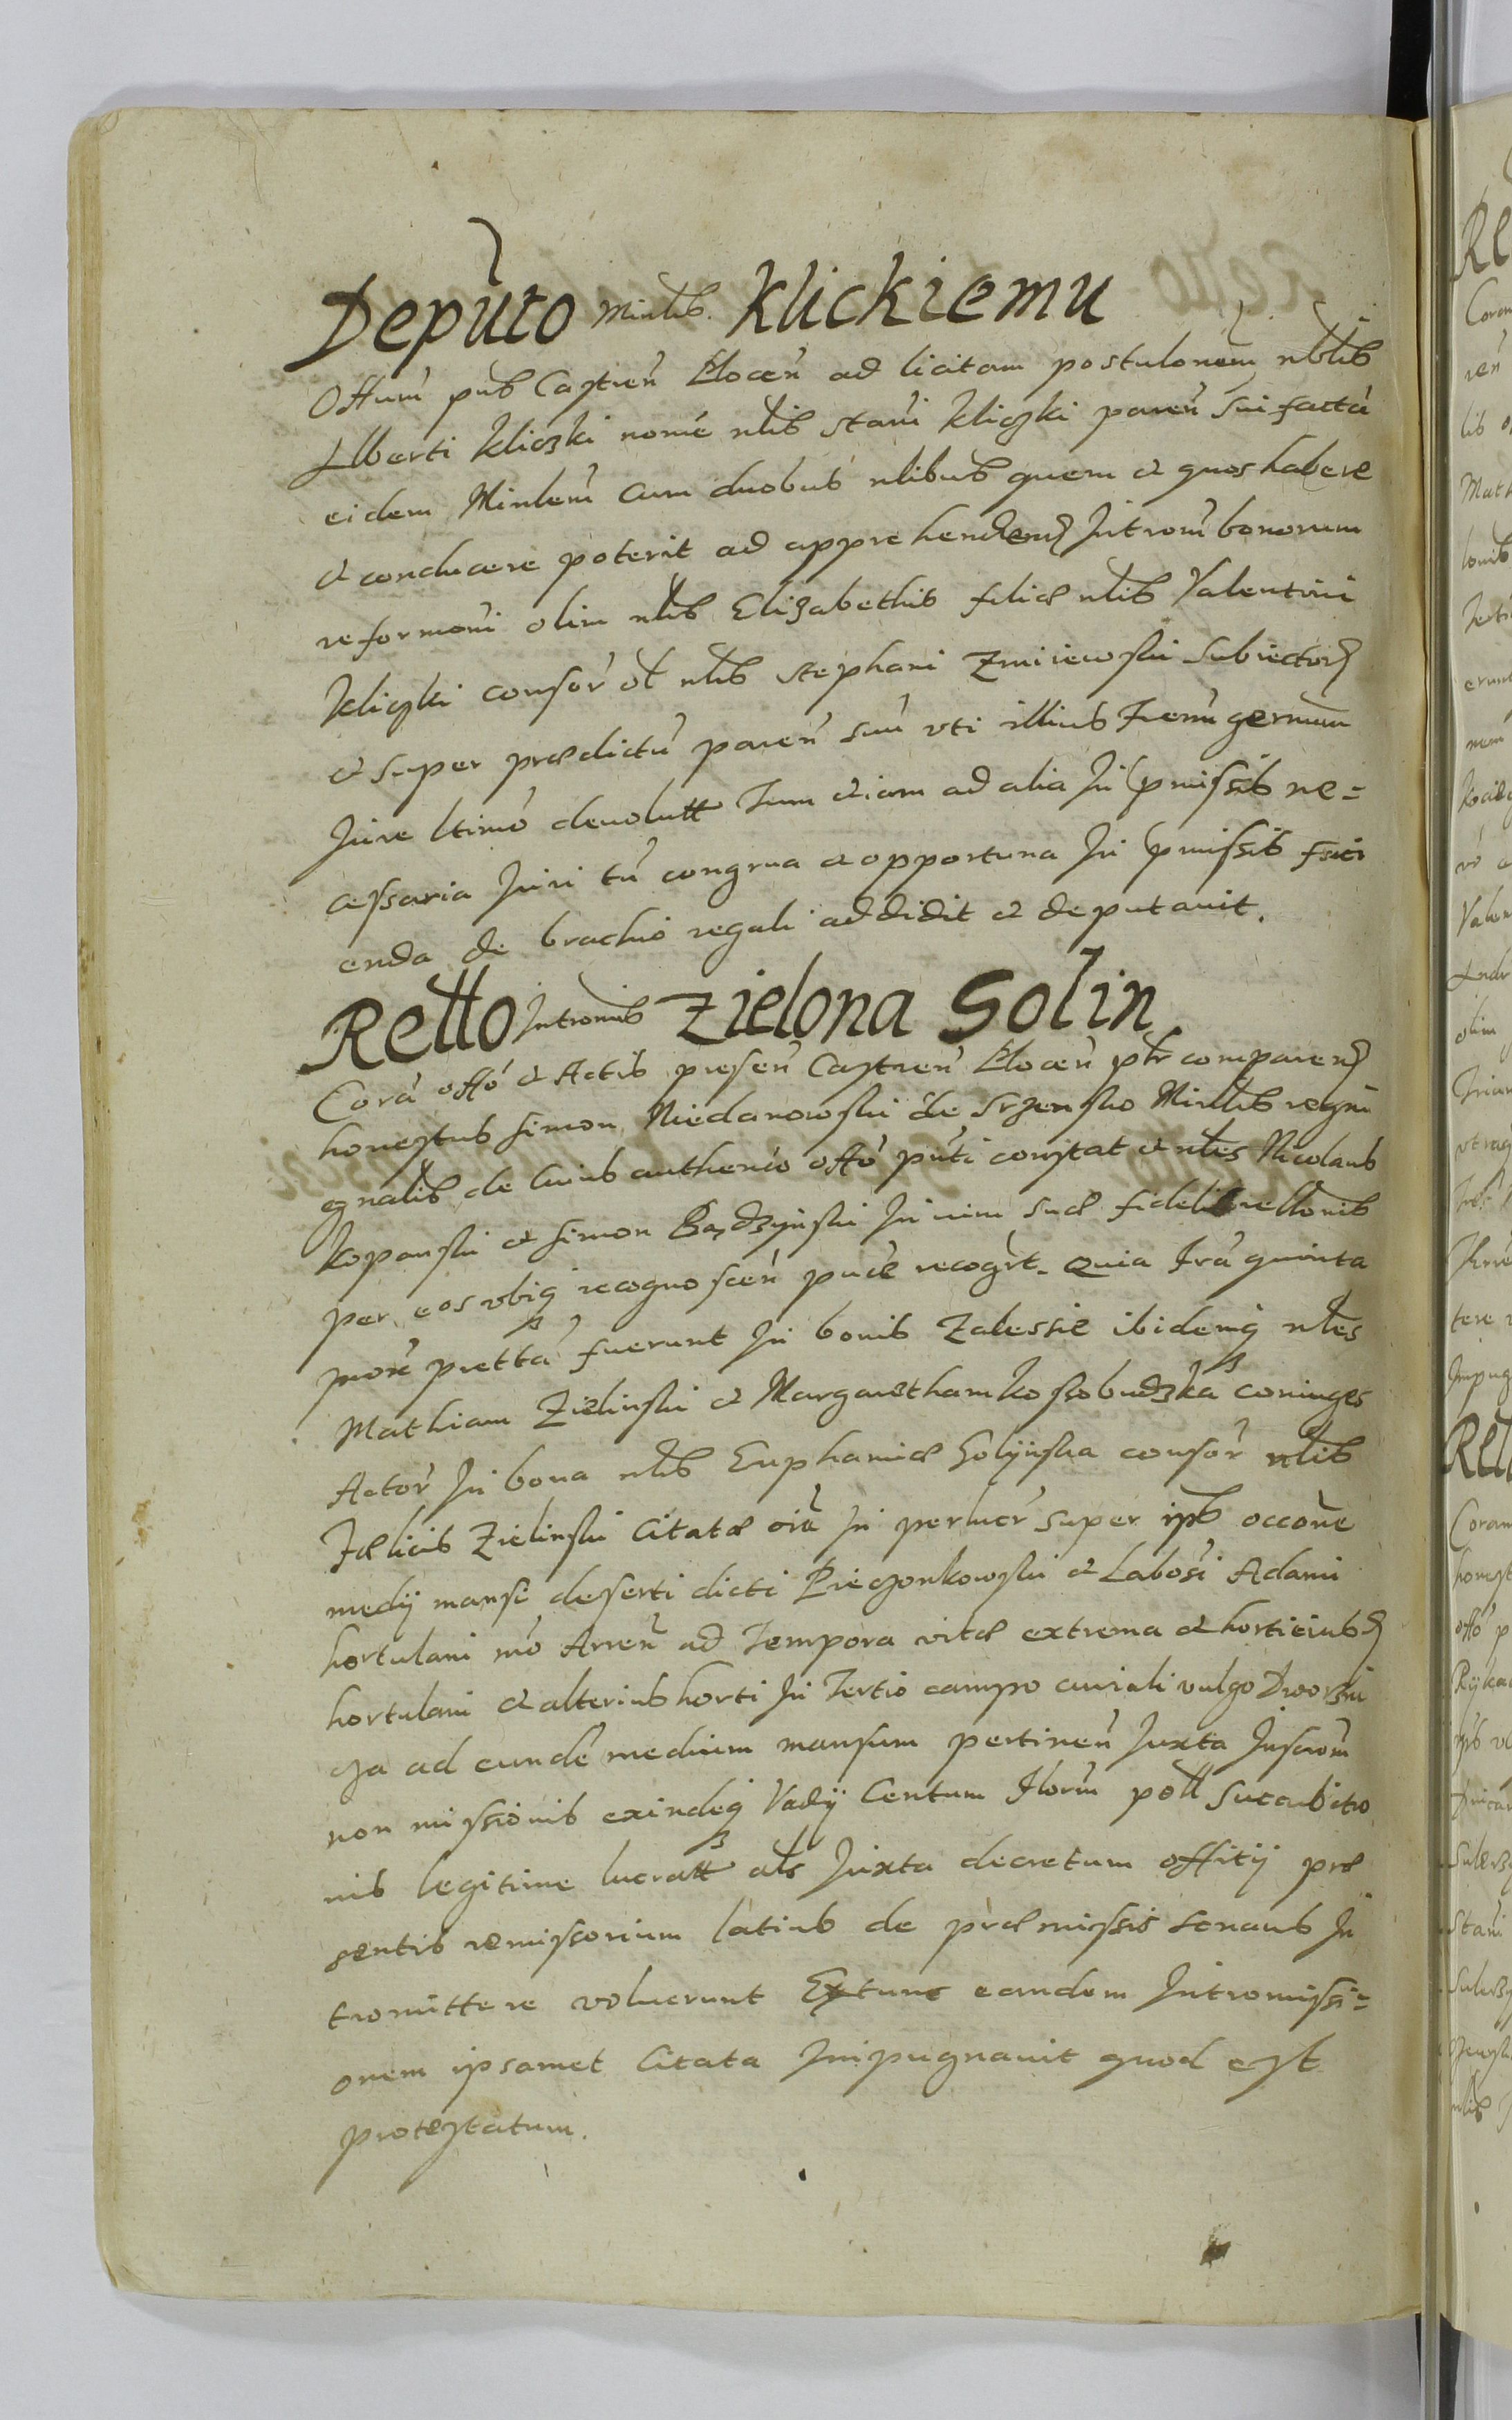 Deputo Minlis. Klickiemu
Offum pns Castren Plocen ad licitam postulonem nblis
Alberti Kliczki nome nlis Stani Kliczki paren sui facta
eidem Minlem cum duobus nlibus quem et quos habere
et conducere poterit ad apprehenden Introm bonorum
reformoni olim nlis Elizabethis filiæ nlis Valentini
Kliczki consor ol nlis Stephani Zmiiewski subiector
et super prædictu paren suu vti illius frem germum
Jure ltimo devolutt Tum etiam ad alia In pmissis ne=
cessaria Juri tn congrua et opportuna In pmissis faci
enda de brachio regali addidit et deputauit.
Retto Intromis Zielona Solin
Cora offo et Actis presen Castren Plocen pltr comparen
honestus Simon Niedanowski de Srzensko Minlis regni
gnalis de cuius authenco offo pnti constat et nles Nicolaus
Kopanski et Simon Bądzynski In vim suæ fidelis rellonis
per eos vbiq recognoscen puce recogrt. Quia fra quinta
pore pretta fuerunt In bonis Zalessie ibidemq nles
Mathiam Zielinski et Margaretham Kossobudzka coniuges
Actor In bona nlis Euphamiæ Golynska consor nlis
Fælicis Zielinski Citatæ oia In perlucr super ips occone
medij mansi deserti dicti Pieczonkowski et Labosi Adami
hortulani mo Arren ad Tempora vitæ extrema et horti eiusd
hortulani et alterius horti In Tertio campo curiali vulgo Dworzni
cza ad eunde medium mansum pertinen Juxta Inscrom
non missionis exindeq Vadij Centum Florm poll succubitio
nis legitime lucratt als Juxta decretum offitij præ
sentis remissorium latius de præmissis sonans In
tromittere voluerunt Extunc eandem Intromissi=
onem ipsamet Citata Impugnauit quod est
protestatum.